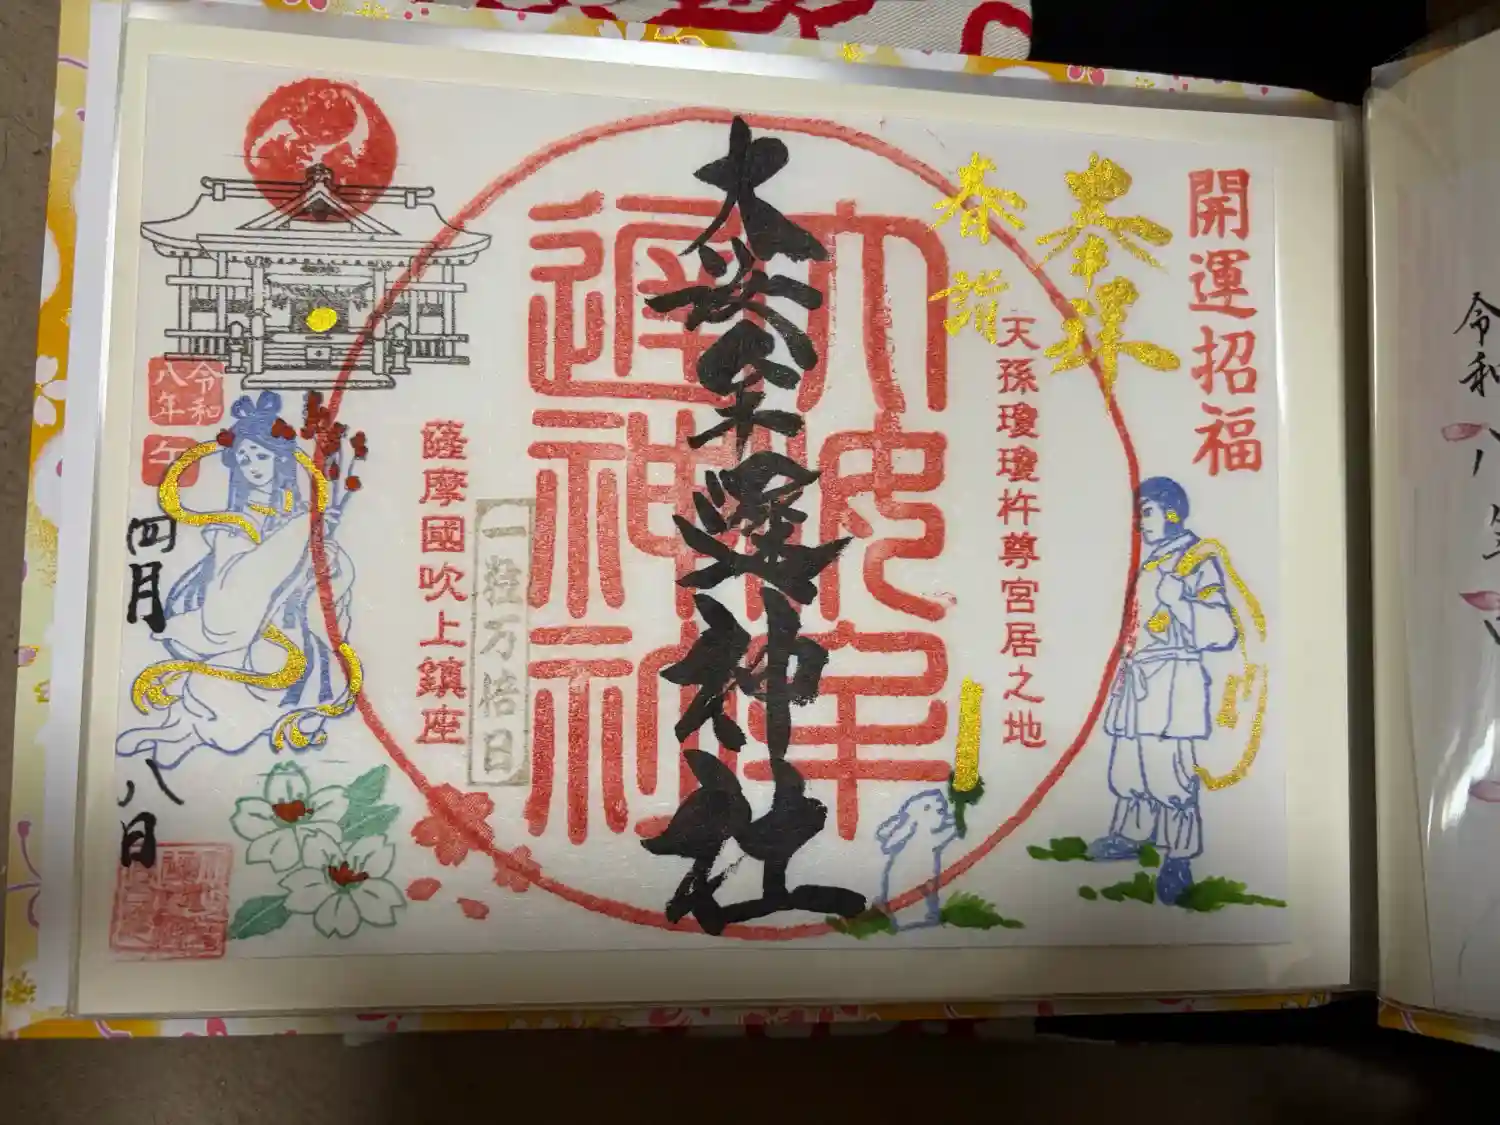 開運招福
奉拝
春詣
天孫瓊瓊杵尊宮居之地
大汝牟遲神社
大汝牟
遲神社
一粒万倍日
薩摩國吹上鎮座
令和
八年
午
四月
八日
令和八年四